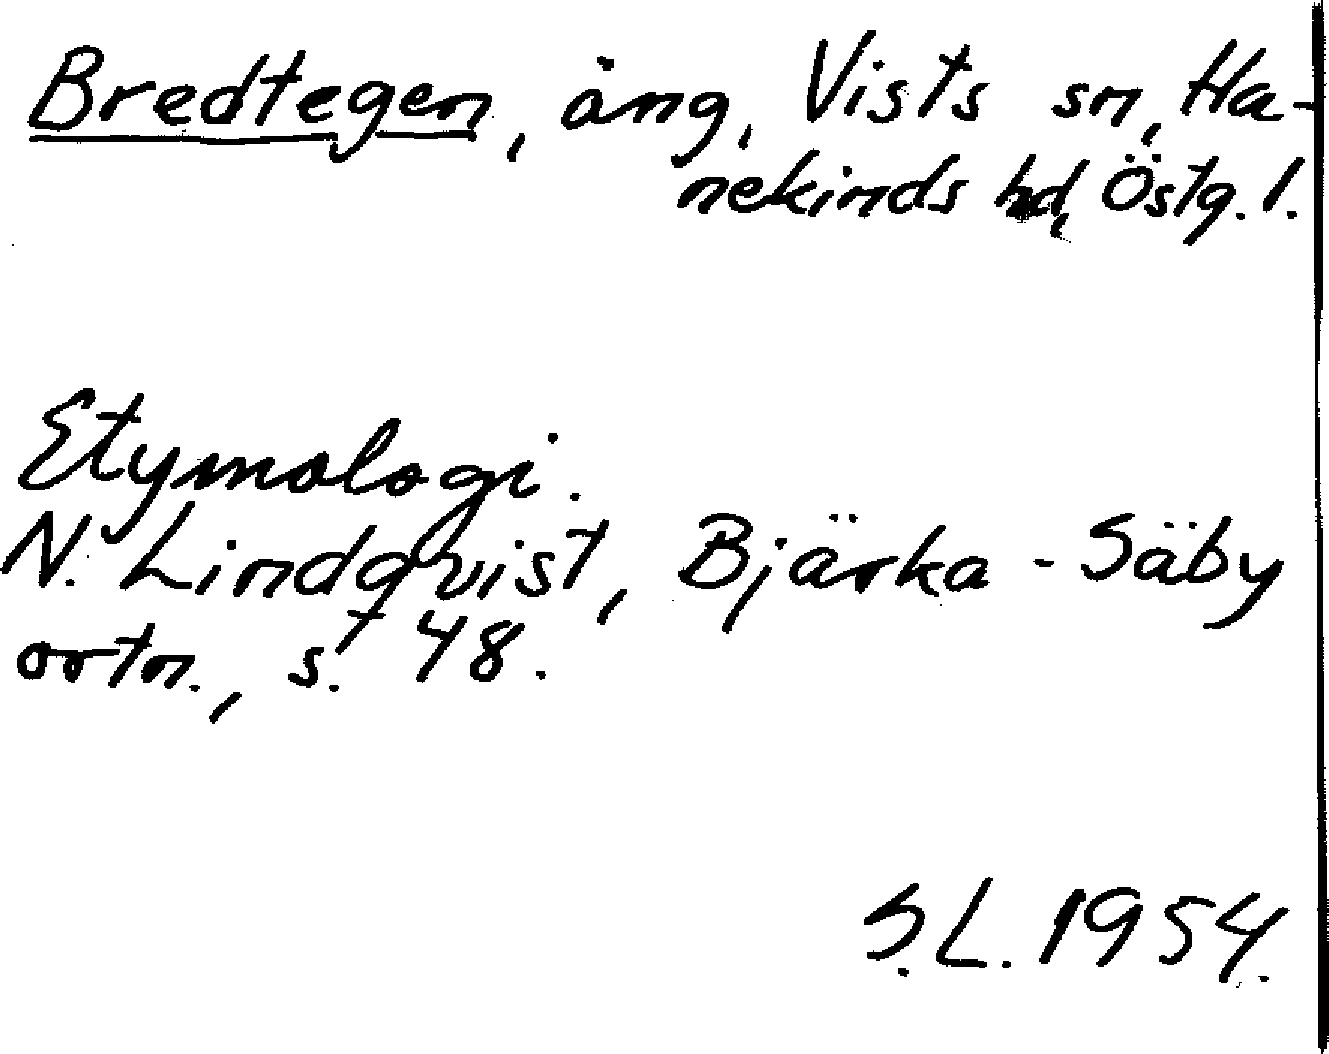 Bredtegen, äng, Vists sn, Ha-
nekinds hd, Östg. l.
Etymologi.
N. Lindqvist, Bjärka-Säby
ortn., s. 48.
S.L. 1954.